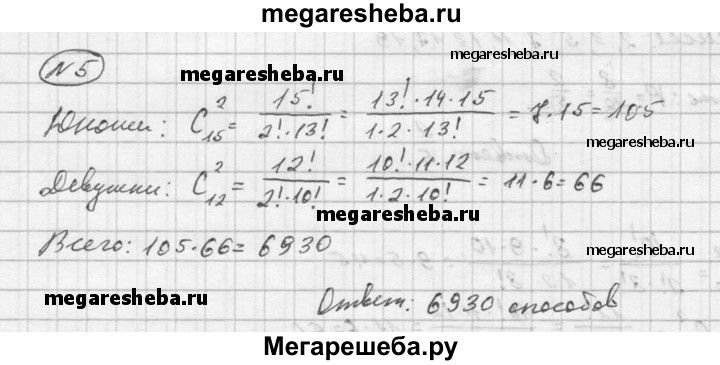 megaresheba.ru
№5
megaresheba.ru
megaresheba.ru
Юноши: C₁₅² = 15!/(2!·13!) = 13!·14·15/(1·2·13!) = 7·15=105
megaresheba.ru
Девушки: C₁₂² = 12!/(2!·10!) = 10!·11·12/(1·2·10!) = 11·6=66
megaresheba.ru
Всего: 105·66=6930
megaresheba.ru
megaresheba.ru
Ответ: 6930 способов
Мегарешеба.ру